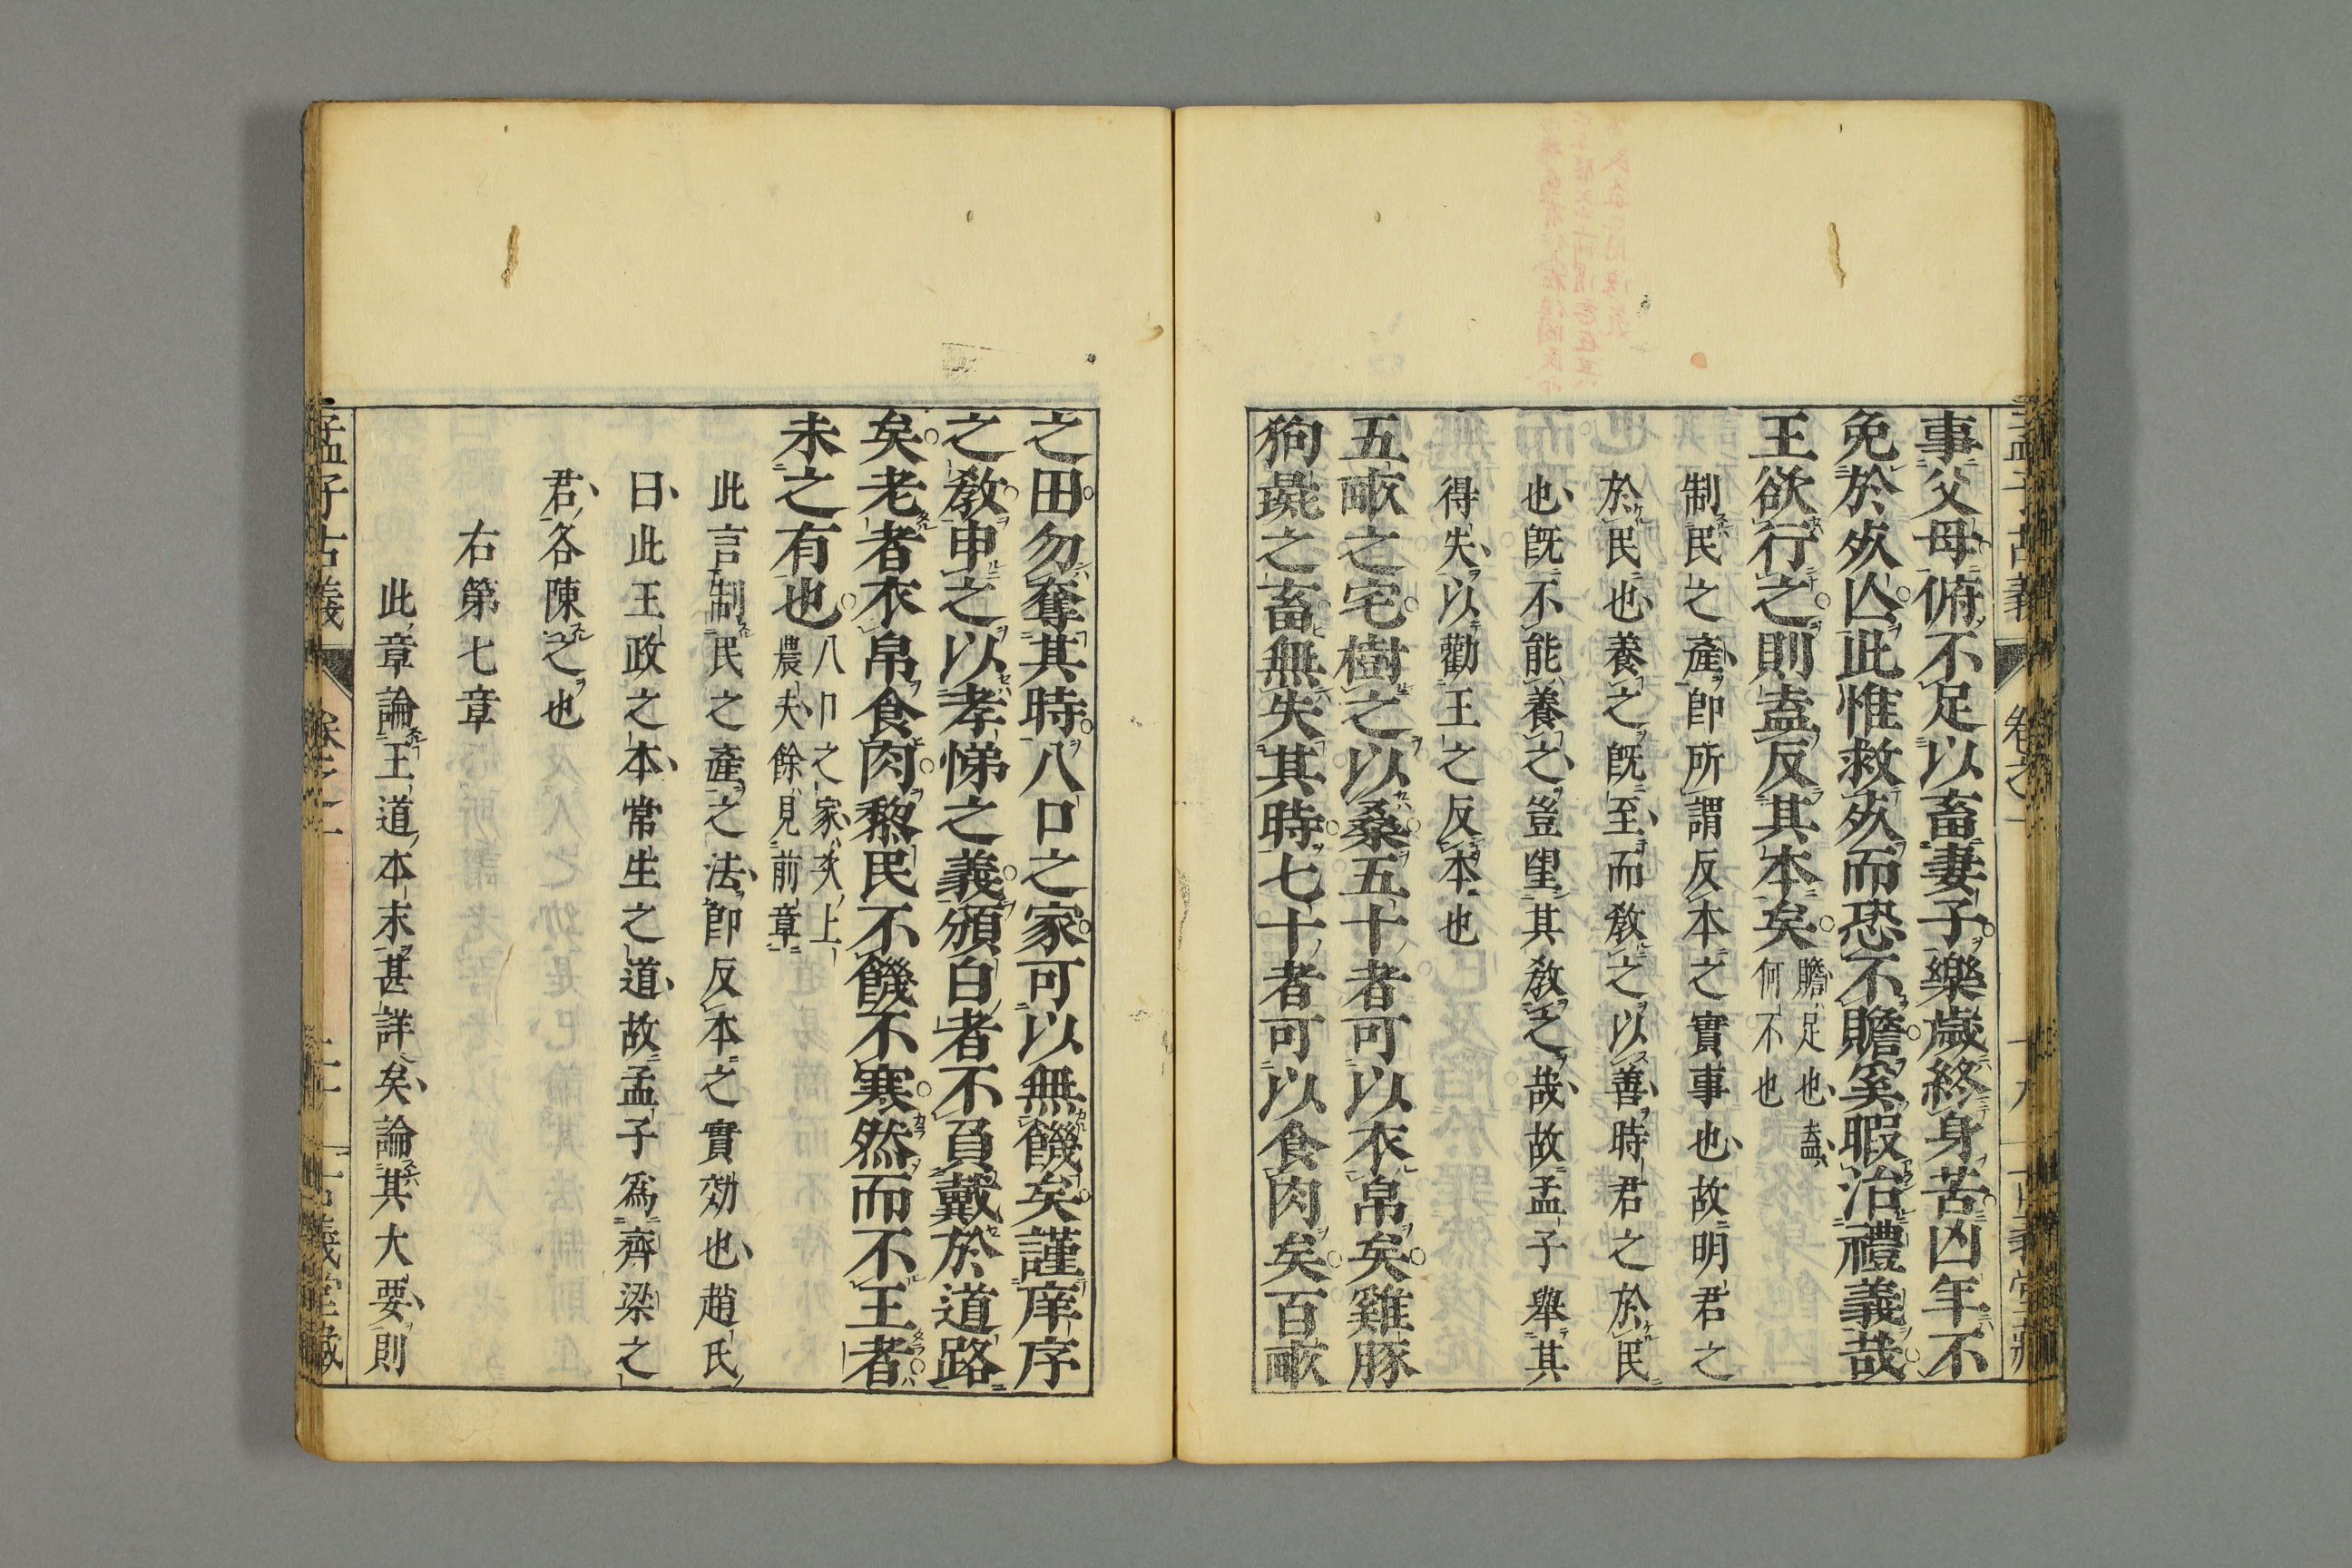 事父母俯不足以畜妻子樂歲終身苦凶年不
免於死亾此惟救死而恐不贍奚暇治禮義哉
王欲行之則盍反其本矣贍足也盍
何不也
制民之產卽所謂反本之實事也故明君之
於民也養之旣至而教之以善時君之於民
也旣不能養之豈望其教之哉故孟子舉其
得失以勸王之反本也
五畝之宅樹之以桑五十者可以衣帛矣雞豚
狗彘之畜無失其時七十者可以食肉矣百畝
之田勿奪其時八口之家可以無饑矣謹庠序
之教申之以孝悌之義頒白者不負戴於道路
矣老者衣帛食肉黎民不饑不寒然而不王者
未之有也八口之家次上
農夫餘見前章
此言制民之產之法卽反本之實効也趙氏
曰此王政之本常生之道故孟子爲齊梁之
君各陳之也
右第七章
此章論王道本末甚詳矣論其大要則
孟子古義
卷之一